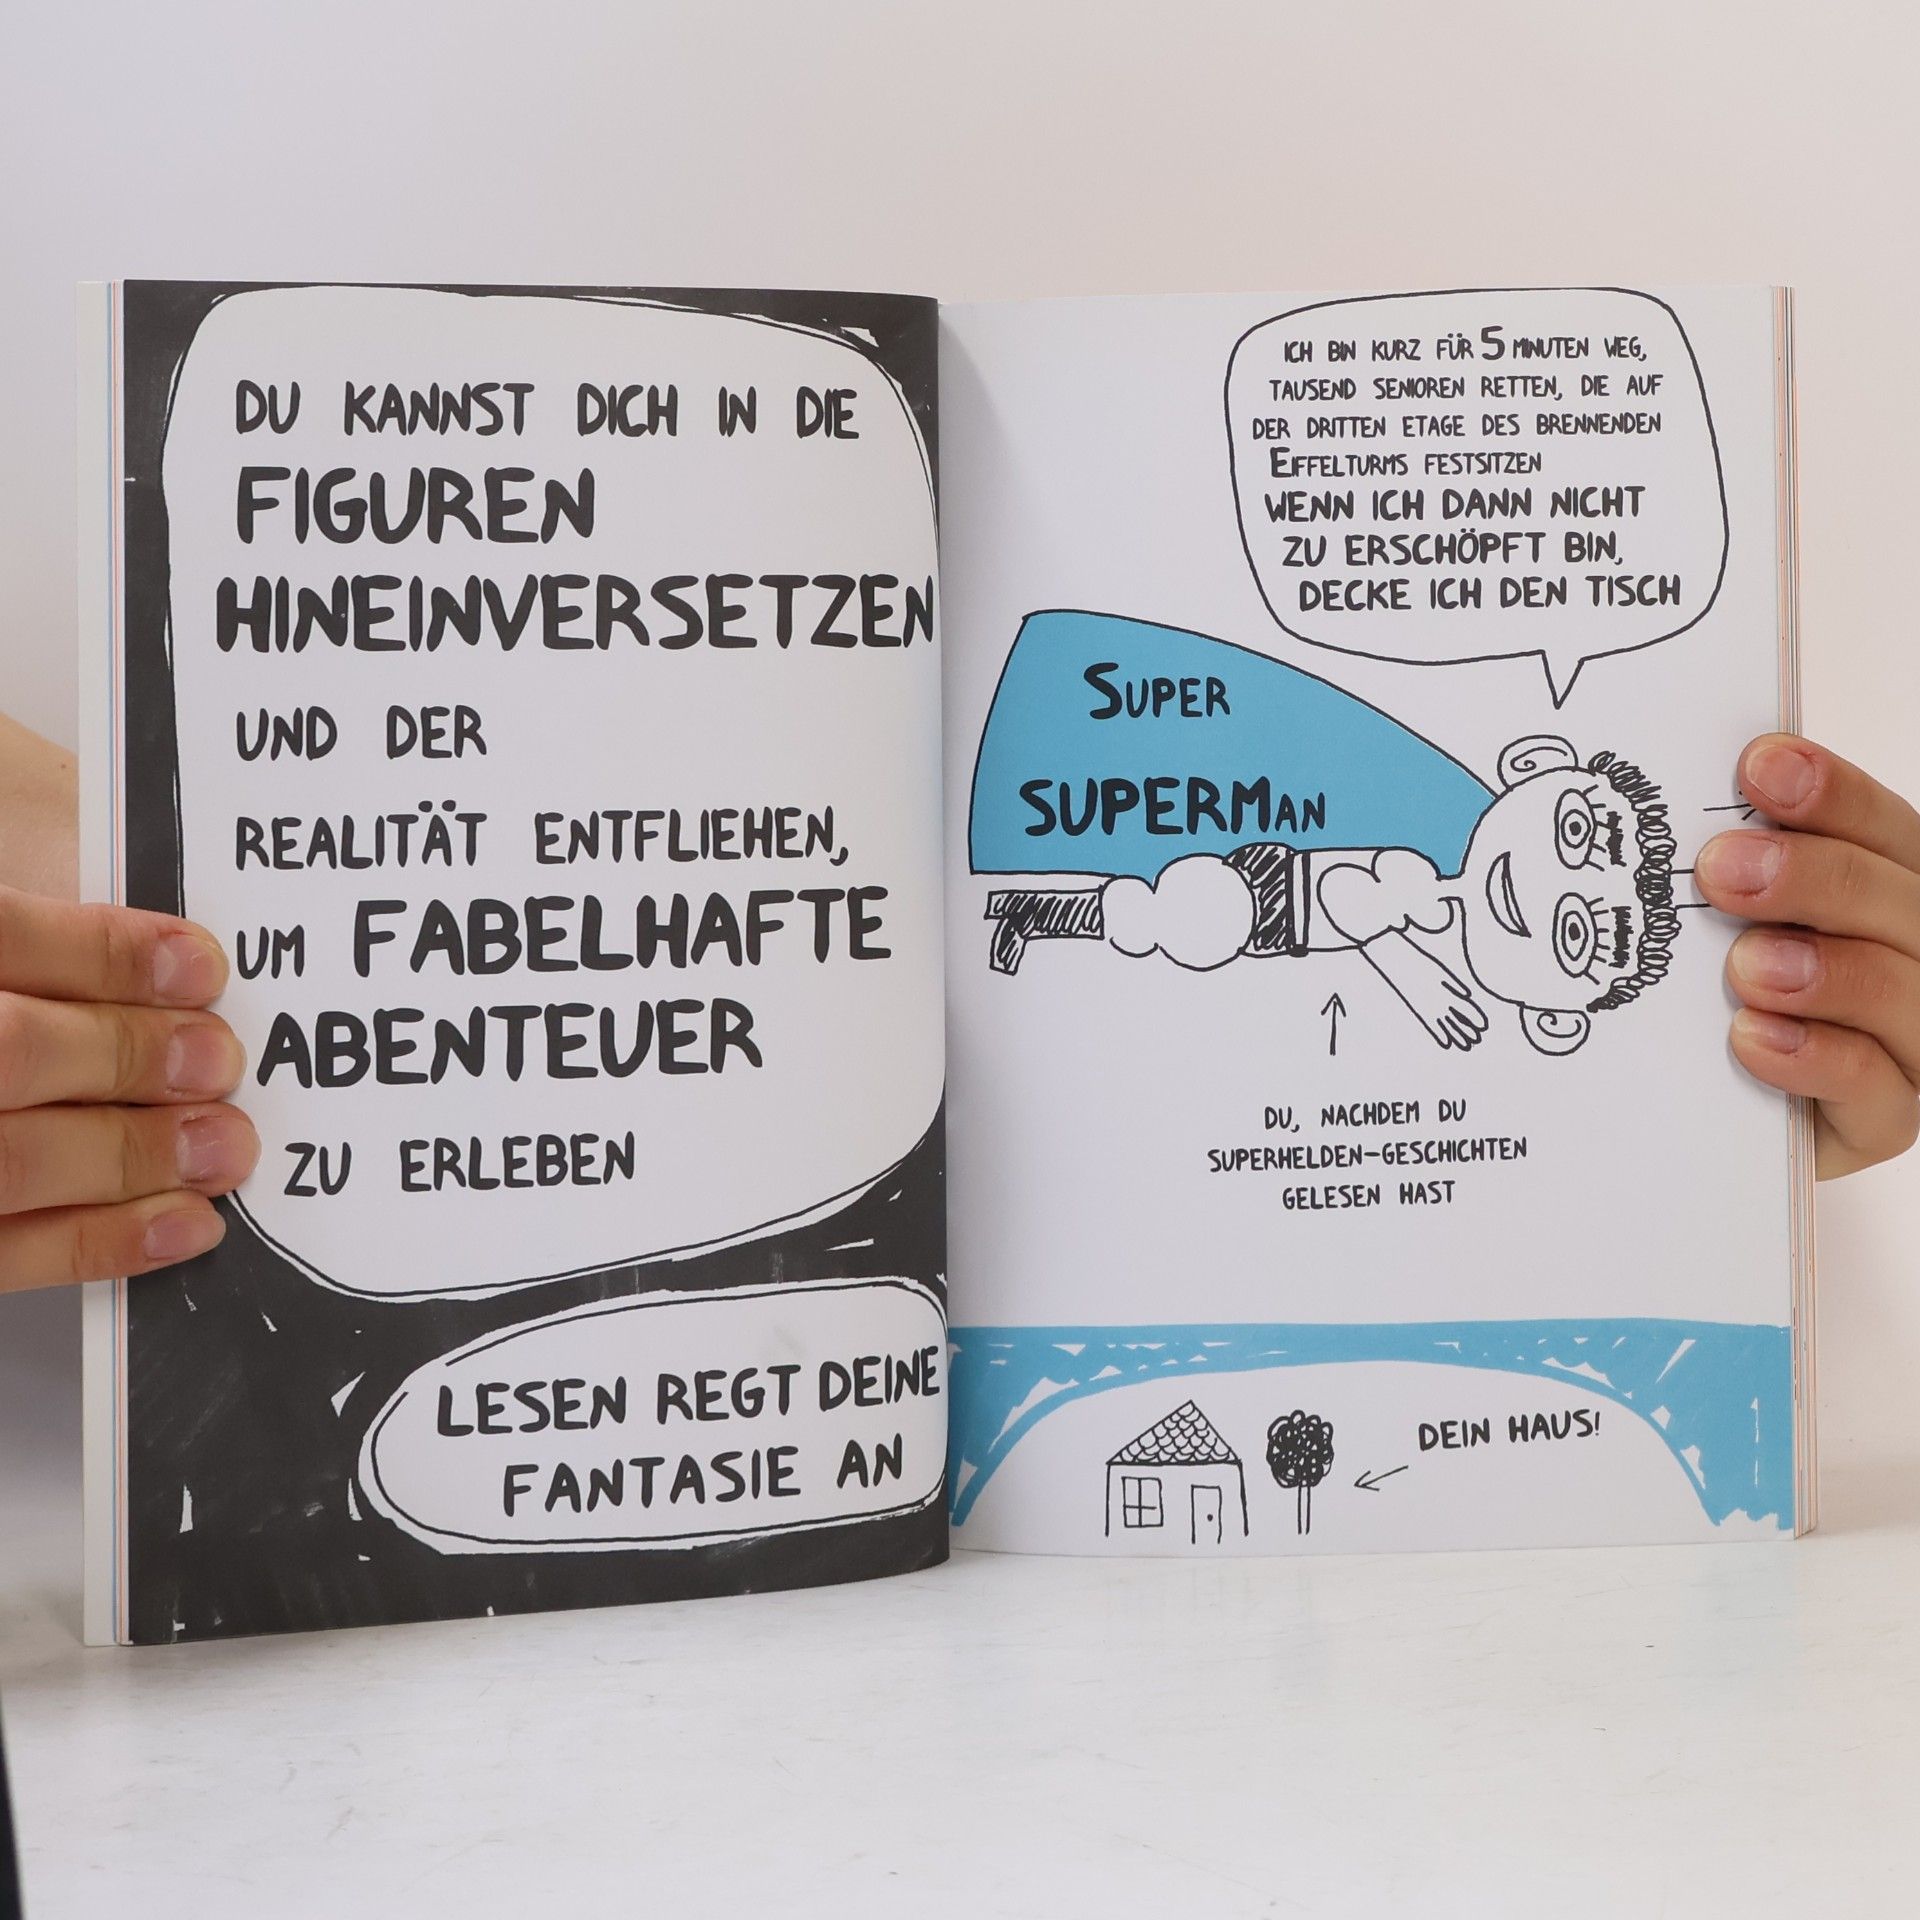 DU KANNST DICH IN DIE
FIGUREN
HINEINVERSETZEN
UND DER
REALITÄT ENTFLIEHEN,
UM FABELHAFTE
ABENTEUER
ZU ERLEBEN
LESEN REGT DEINE
FANTASIE AN
ICH BIN KURZ FÜR 5 MINUTEN WEG,
TAUSEND SENIOREN RETTEN, DIE AUF
DER DRITTEN ETAGE DES BRENNENDEN
EIFFELTURMS FESTSITZEN
WENN ICH DANN NICHT
ZU ERSCHÖPFT BIN,
DECKE ICH DEN TISCH
SUPER
SUPERMAN
DU, NACHDEM DU
SUPERHELDEN-GESCHICHTEN
GELESEN HAST
DEIN HAUS!